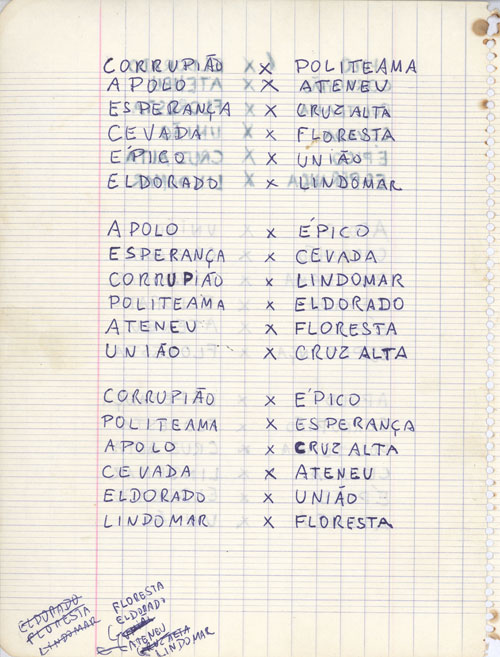 CORRUPIÃO x POLITEAMA
APOLO x ATENEU
ESPERANÇA x CRUZ ALTA
CEVADA x FLORESTA
ÉPICO x UNIÃO
ELDORADO x LINDOMAR
APOLO x ÉPICO
ESPERANÇA x CEVADA
CORRUPIÃO x LINDOMAR
POLITEAMA x ELDORADO
ATENEU x FLORESTA
UNIÃO x CRUZ ALTA
CORRUPIÃO x ÉPICO
POLITEAMA x ESPERANÇA
APOLO x CRUZ ALTA
CEVADA x ATENEU
ELDORADO x UNIÃO
LINDOMAR x FLORESTA
ELDORADO
FLORESTA
LINDOMAR
FLORESTA
ELDORADO
ATENEU
CRUZ ALTA
LINDOMAR